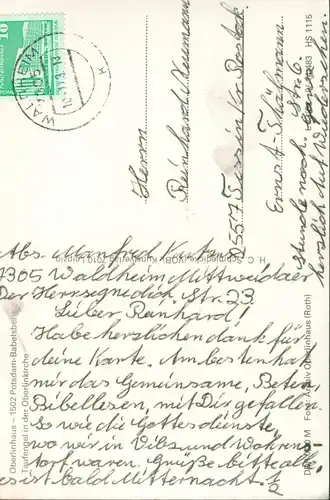 Abs. Manfred
7305 Waldheim Mittweidaer
Str. 23
Der Herr segne dich
Lieber, Reinhard!
Habe herzlichen dank für
deine Karte. Am besten hat
mir das Gemeinsame, Beten,
Bibellesen, mit Dir gefallen.
So wie die Gottesdienste,
wo wir in Vibz und Wohren-
torf waren. Grüße bitte alle
es ist bald Mitternacht
stunde noch.
herzlich
Herrn
Reinhard Neumann
2557 Tessin Kr. Rostock
Ernst-Thälmann
Str. 6.
WALDHEIM
7305
10
Oberlinhaus – 1502 Potsdam-Babelsberg
Taufengel in der Oberlinkirche
Foto: Archiv Oberlinhaus (Roth)
HS 1115